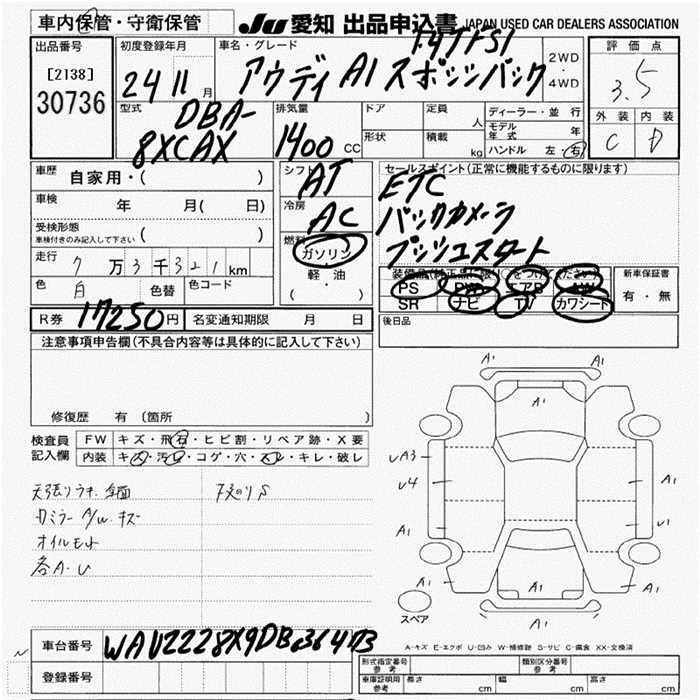 車内保管・守衛保管
JU 愛知 出品申込書 JAPAN USED CAR DEALERS ASSOCIATION
出品番号
[2138]
30736
初度登録年月
24 11 月
車名・グレード
1.4TFSI
アウディ A1 スポーツバック
2WD
・
4WD
評価点
3.5
外装 内装
C D
型式
DBA-
8XCAX
排気量
1400 CC
ドア
形状
定員 人
積載 kg
ディーラー・並行
モデル年式 年
ハンドル 左・右
車歴 自家用・( )
車検 年 月( 日)
受検形態
車検付きのみ記入して下さい ( )
走行 7万3千321km
色 白 色替 色コード
シフト
AT
冷房
AC
燃料
ガソリン
軽・油
( ・ )
セールスポイント(正常に機能するものに限ります)
ETC
バックカメラ
プッシュスタート
装備品(純正品に限り○をつけてください)
PS PW エアB AW
SR ナビ TV カワシート
新車保証書
有・無
R券 17250円 名変通知期限 月 日
後日品
注意事項申告欄(不具合内容等は具体的に記入して下さい)
修復歴 有 〔箇所 〕
検査員記入欄
FW キズ・飛石・ヒビ割・リペア跡・X要
内装 キズ・汚レ・コゲ・穴・スレ・キレ・破レ
カミラー A/W キズ
オイルモレ
各A・U
A1
A1
UA3
U4
A1
U1
A1
A1
A1
A1
A1
スペア
A-キズ E-エクボ U-凹み W-補修跡 S-サビ C-腐食 XX-交換済
車台番号
登録番号
形式指定番号
参考
類別区分番号
参考
車庫証明用
参考
長さ cm 幅 cm 高さ cm